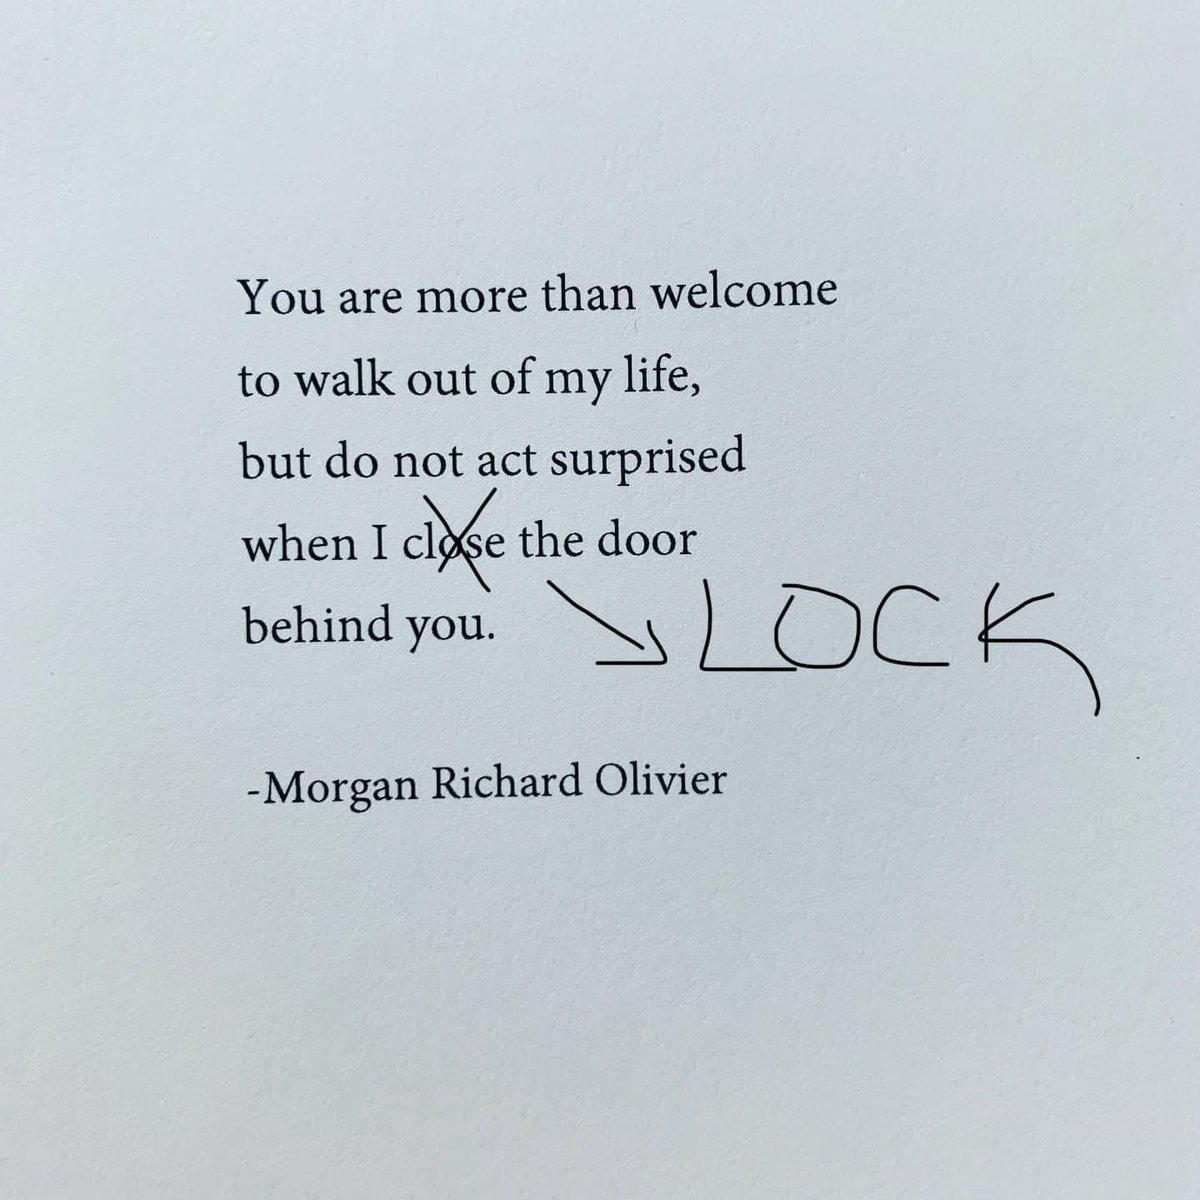 You are more than welcome
to walk out of my life,
but do not act surprised
when I close the door
behind you. LOCK
-Morgan Richard Olivier